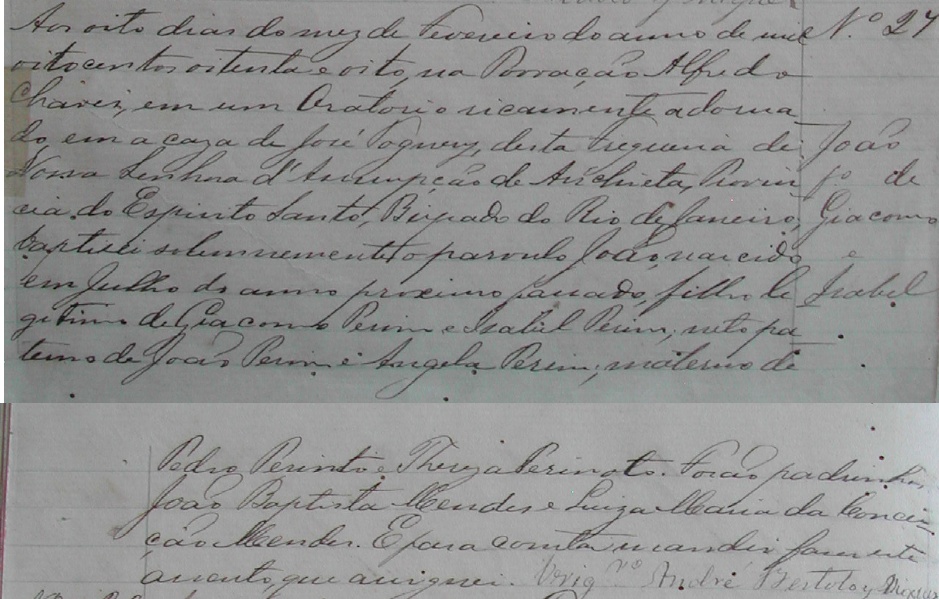 Aos oito dias do mez de Fevereiro do anno de mil
oitocentos oitenta e oito, na Povoação Alfredo
Chaves, em um Oratorio ricamente adorna
do em a caza de José Tognery, desta Freguezia de
Nossa Senhora d'Assumpção de Anchieta, Provin
cia do Espirito Santo, Bispado do Rio de Janeiro,
baptisei solemnemente o parvulo João, nascido
em Julho do anno proximo passado, filho le
gitimo de Giacomo Perim e Isabel Perim, neto pa
terno de João Perim e Angela Perim; materno de
Nº 27
João
fº de
Giacomo
e
Isabel
Pedro Perinto e Thereza Perinoto. Forão padrinhos
João Baptista Mendes e Luiza Maria da Concei
ção Mendes. E para constar mandei fazer este
assento, que assignei. Vigrº André